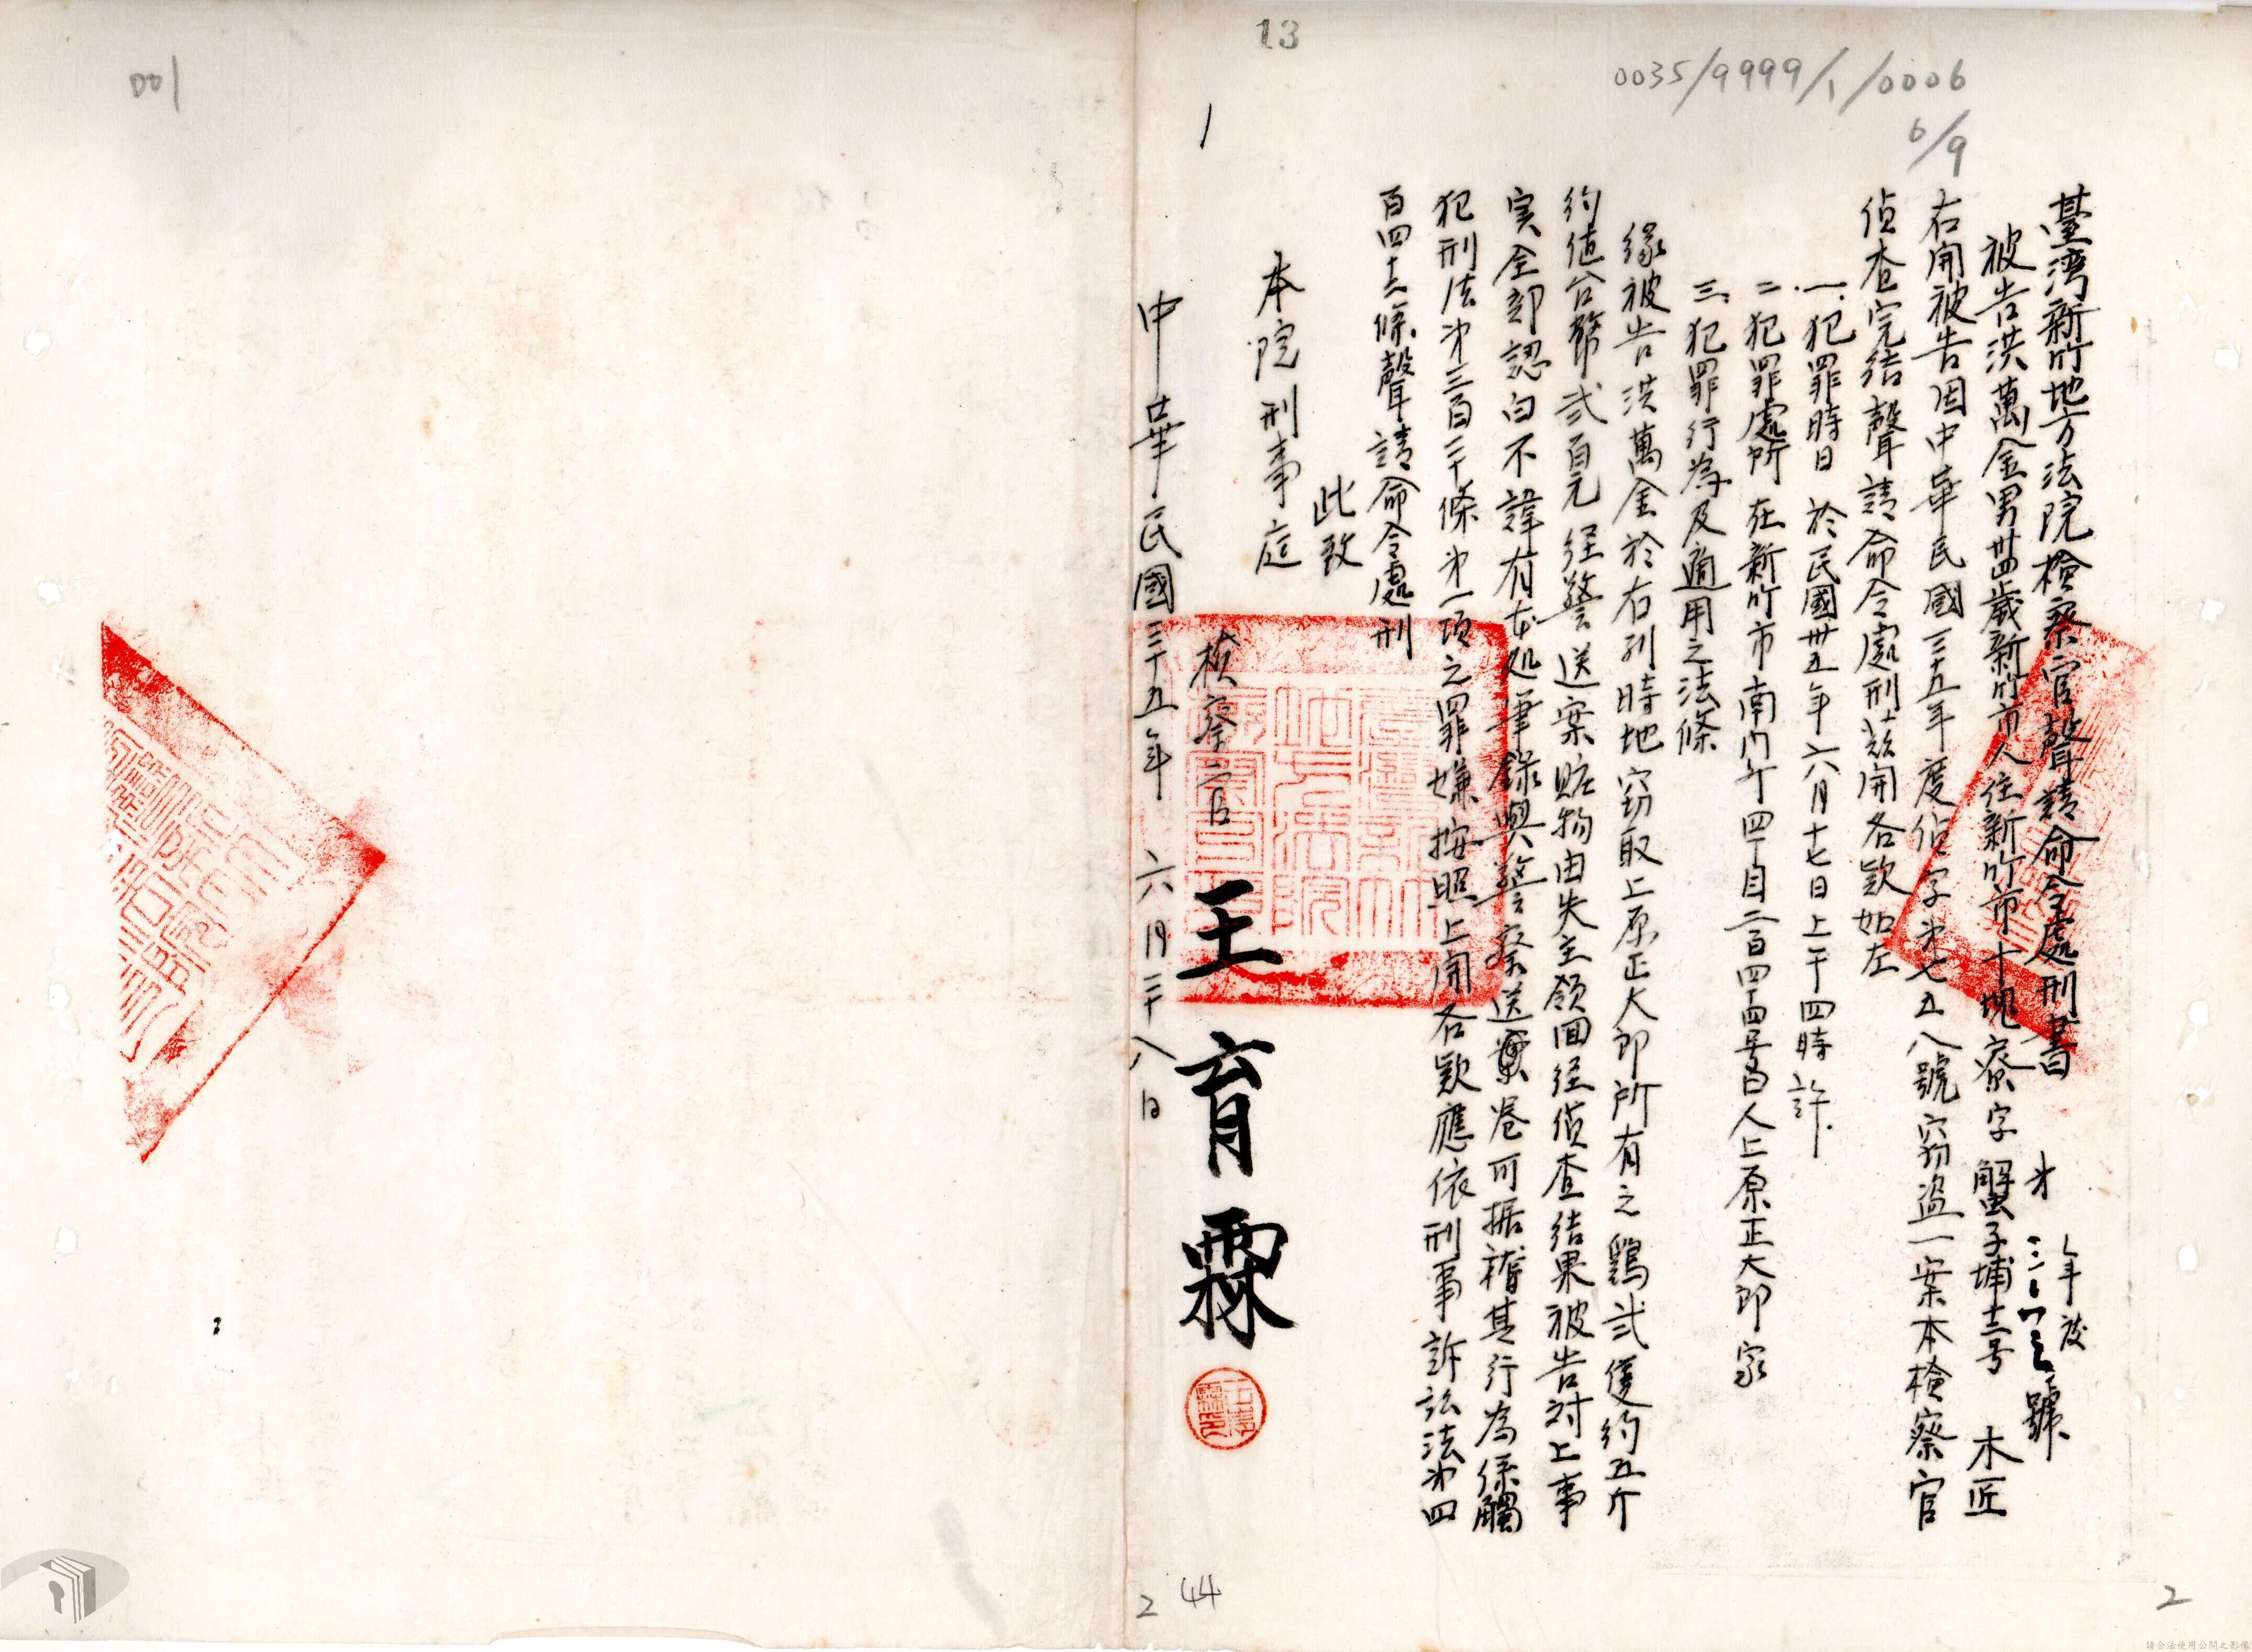 13
0035/9999/1/0006
6/9
001
臺湾新竹地方法院檢察官聲請命令處刑書
年度
第 號
被告洪萬金男卅四歲新竹市人住新竹市十塊寮字蟹子埔十二号 木匠
右開被告因中華民國三十五年度偵字第七五八號窃盗一案本檢察官
偵查完結聲請命令處刑茲開各欵如左
一.犯罪時日 於民國卅五年六月十七日上午四時許.
二.犯罪處所 在新竹市南門午四丁目二百四十四番日人上原正大郎家
三.犯罪行為及適用之法條
緣被告洪萬金於右列時地窃取上原正大郎所有之鷄弍隻約五斤
約值台幣弍百元経警送案賍物由失主領回経偵查結果被告对上事
実全部認白不諱有本処筆錄與警察送案卷可据稽其行為係觸
犯刑法第三百二十條第一項之罪嫌按照上開各欵應依刑事訴訟法第四
百四十二條聲請命令處刑
此致
本院刑事庭
檢察官 王育霖
中華民國三十五年 六月二十八日
44
2
2
請合法使用公開之影像